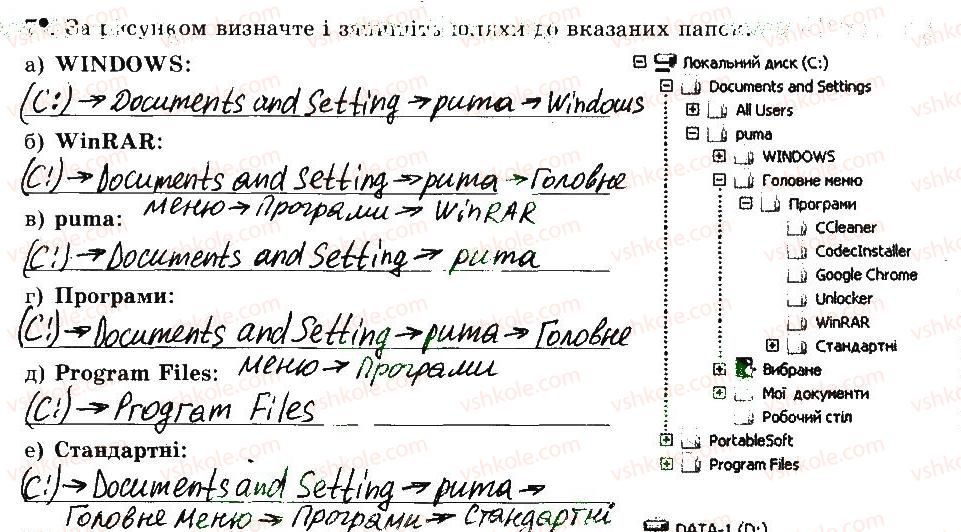 7. За рисунком визначте і запишіть шляхи до вказаних папок:
а) WINDOWS:
(C:) → Documents and Setting → puma → Windows
б) WinRAR:
(C:) → Documents and Setting → puma → Головне
меню → Програми → WinRAR
в) puma:
(C:) → Documents and Setting → puma
г) Програми:
(C:) → Documents and Setting → puma → Головне
меню → Програми
д) Program Files:
(C:) → Program Files
е) Стандартні:
(C:) → Documents and Setting → puma →
Головне меню → Програми → Стандартні
Локальний диск (C:)
Documents and Settings
All Users
puma
WINDOWS
Головне меню
Програми
CCleaner
CodecInstaller
Google Chrome
Unlocker
WinRAR
Стандартні
Вибране
Мої документи
Робочий стіл
PortableSoft
Program Files
DATA-1 (D:)